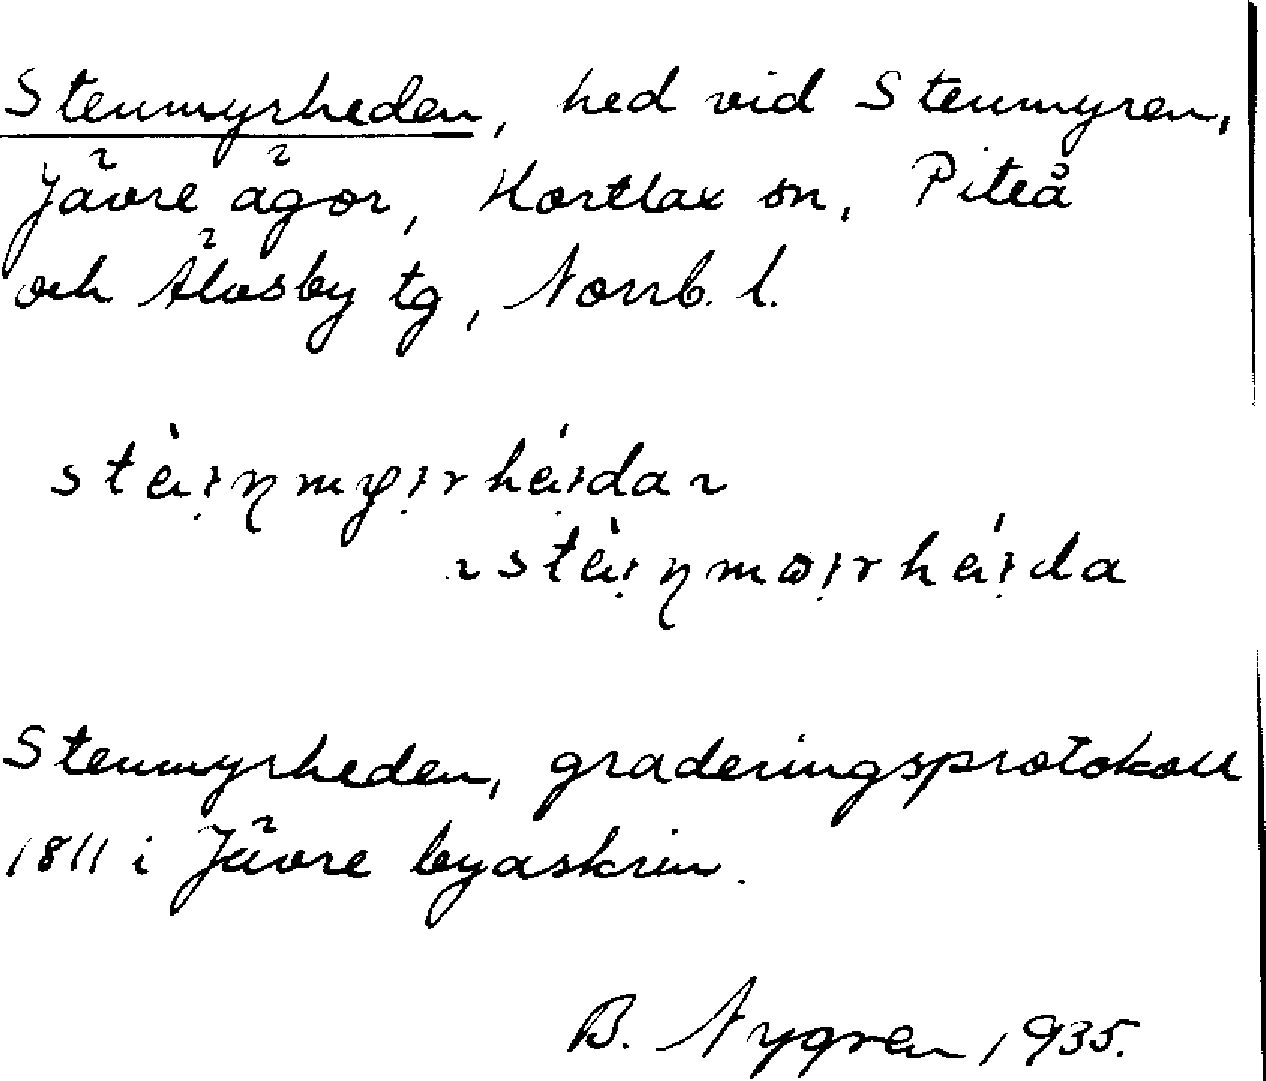 Stenmyrheden, hed vid Stenmyren,
Jävre ägor, Hortlax sn, Piteå
och Älvsby tg, Norrb. l.
Stenmyrheden, graderingsprotokoll
1811 i Jävre byaskrin.
B. Nygren 1935.